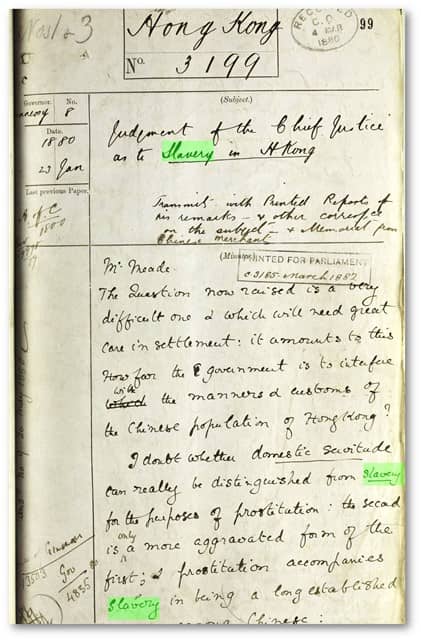 Hong Kong
RECEIVED
C.O.
4 MAR
1880
99
No. 3199
Governor. No.
8
Date.
1880
23 Jan
Last previous Paper.
(Subject.)
Judgment of the Chief Justice
as to Slavery in H Kong
Transmits with Printed Reports of
his remarks - & other
on the subject - & Memorial from
Chinese Merchant
(Minutes)
PRINTED FOR PARLIAMENT
C 3185 March 1882
Mr Meade
The Question now raised is a very
difficult one & which will need great
care in settlement: it amounts to this
How far the Government is to interfere
with
which the manners & customs of
the Chinese population of Hong Kong?
I doubt whether domestic servitude
can really be distinguished from Slavery
for the purposes of prostitution: the second
only
is a more aggravated form of the
first; & prostitution accompanies
Slavery in being a long established
among Chinese:
Gov
4835